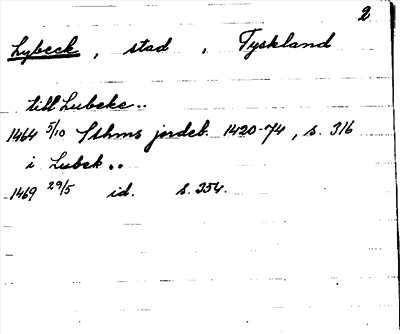 2
Lybeck, stad, Tyskland
till Lubeke..
1464 5/10 Sthms jordeb. 1420-74, s. 316
i Lubek..
1469 29/5 id. s. 354.